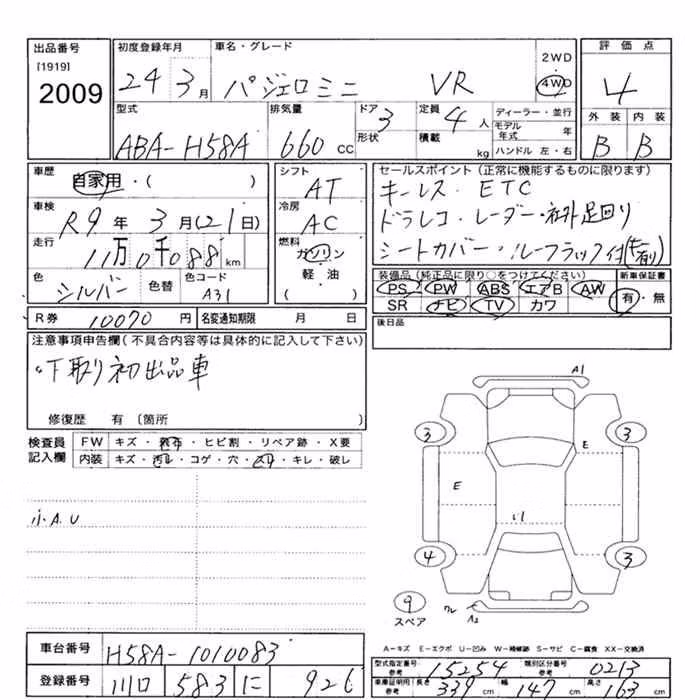 出品番号 初度登録年月 車名・グレード 評価点
[1919]
2009
24 3月 パジェロミニ VR 2WD 4WD 4
型式 排気量 ドア 定員 ディーラー・並行 外装 内装
ABA-H58A 660cc 3 4人 モデル年式 年 B B
形状 積載 kg ハンドル 左・右
車歴 シフト セールスポイント(正常に機能するものに限ります)
自家用・( ) AT キーレス・ETC
車検 R9年3月(21日) 冷房 AC ドラレコ・レーダー・社外足回り
走行 11万0千088km 燃料 ガソリン シートカバー・ルーフラック付
軽・油
( )
色 シルバー 色替 色コード A31
装備品(純正品に限り○をつけてください) 新車保証書
PS PW ABS エアB AW 有・無
SR ナビ TV カワ
R券 10070円 名変通知期限 月 日
後日品
注意事項申告欄(不具合内容等は具体的に記入して下さい)
下取り初出品車
修復歴 有 〔箇所 〕
検査員記入欄 FW キズ・飛石・ヒビ割・リペア跡・X要
内装 キズ・汚レ・コゲ・穴・スレ・キレ・破レ
小A.U
A1
3 3
E
E
4 3
9
スペア
A2
A-キズ E-エクボ U-凹み W-補修跡 S-サビ C-腐食 XX-交換済
車台番号 H58A-1010083
登録番号 川口 583 に 926
型式指定番号 参考 15254 類別区分番号 参考 0213
車庫証明用 参考 長さ 339cm 幅 147cm 高さ 163cm